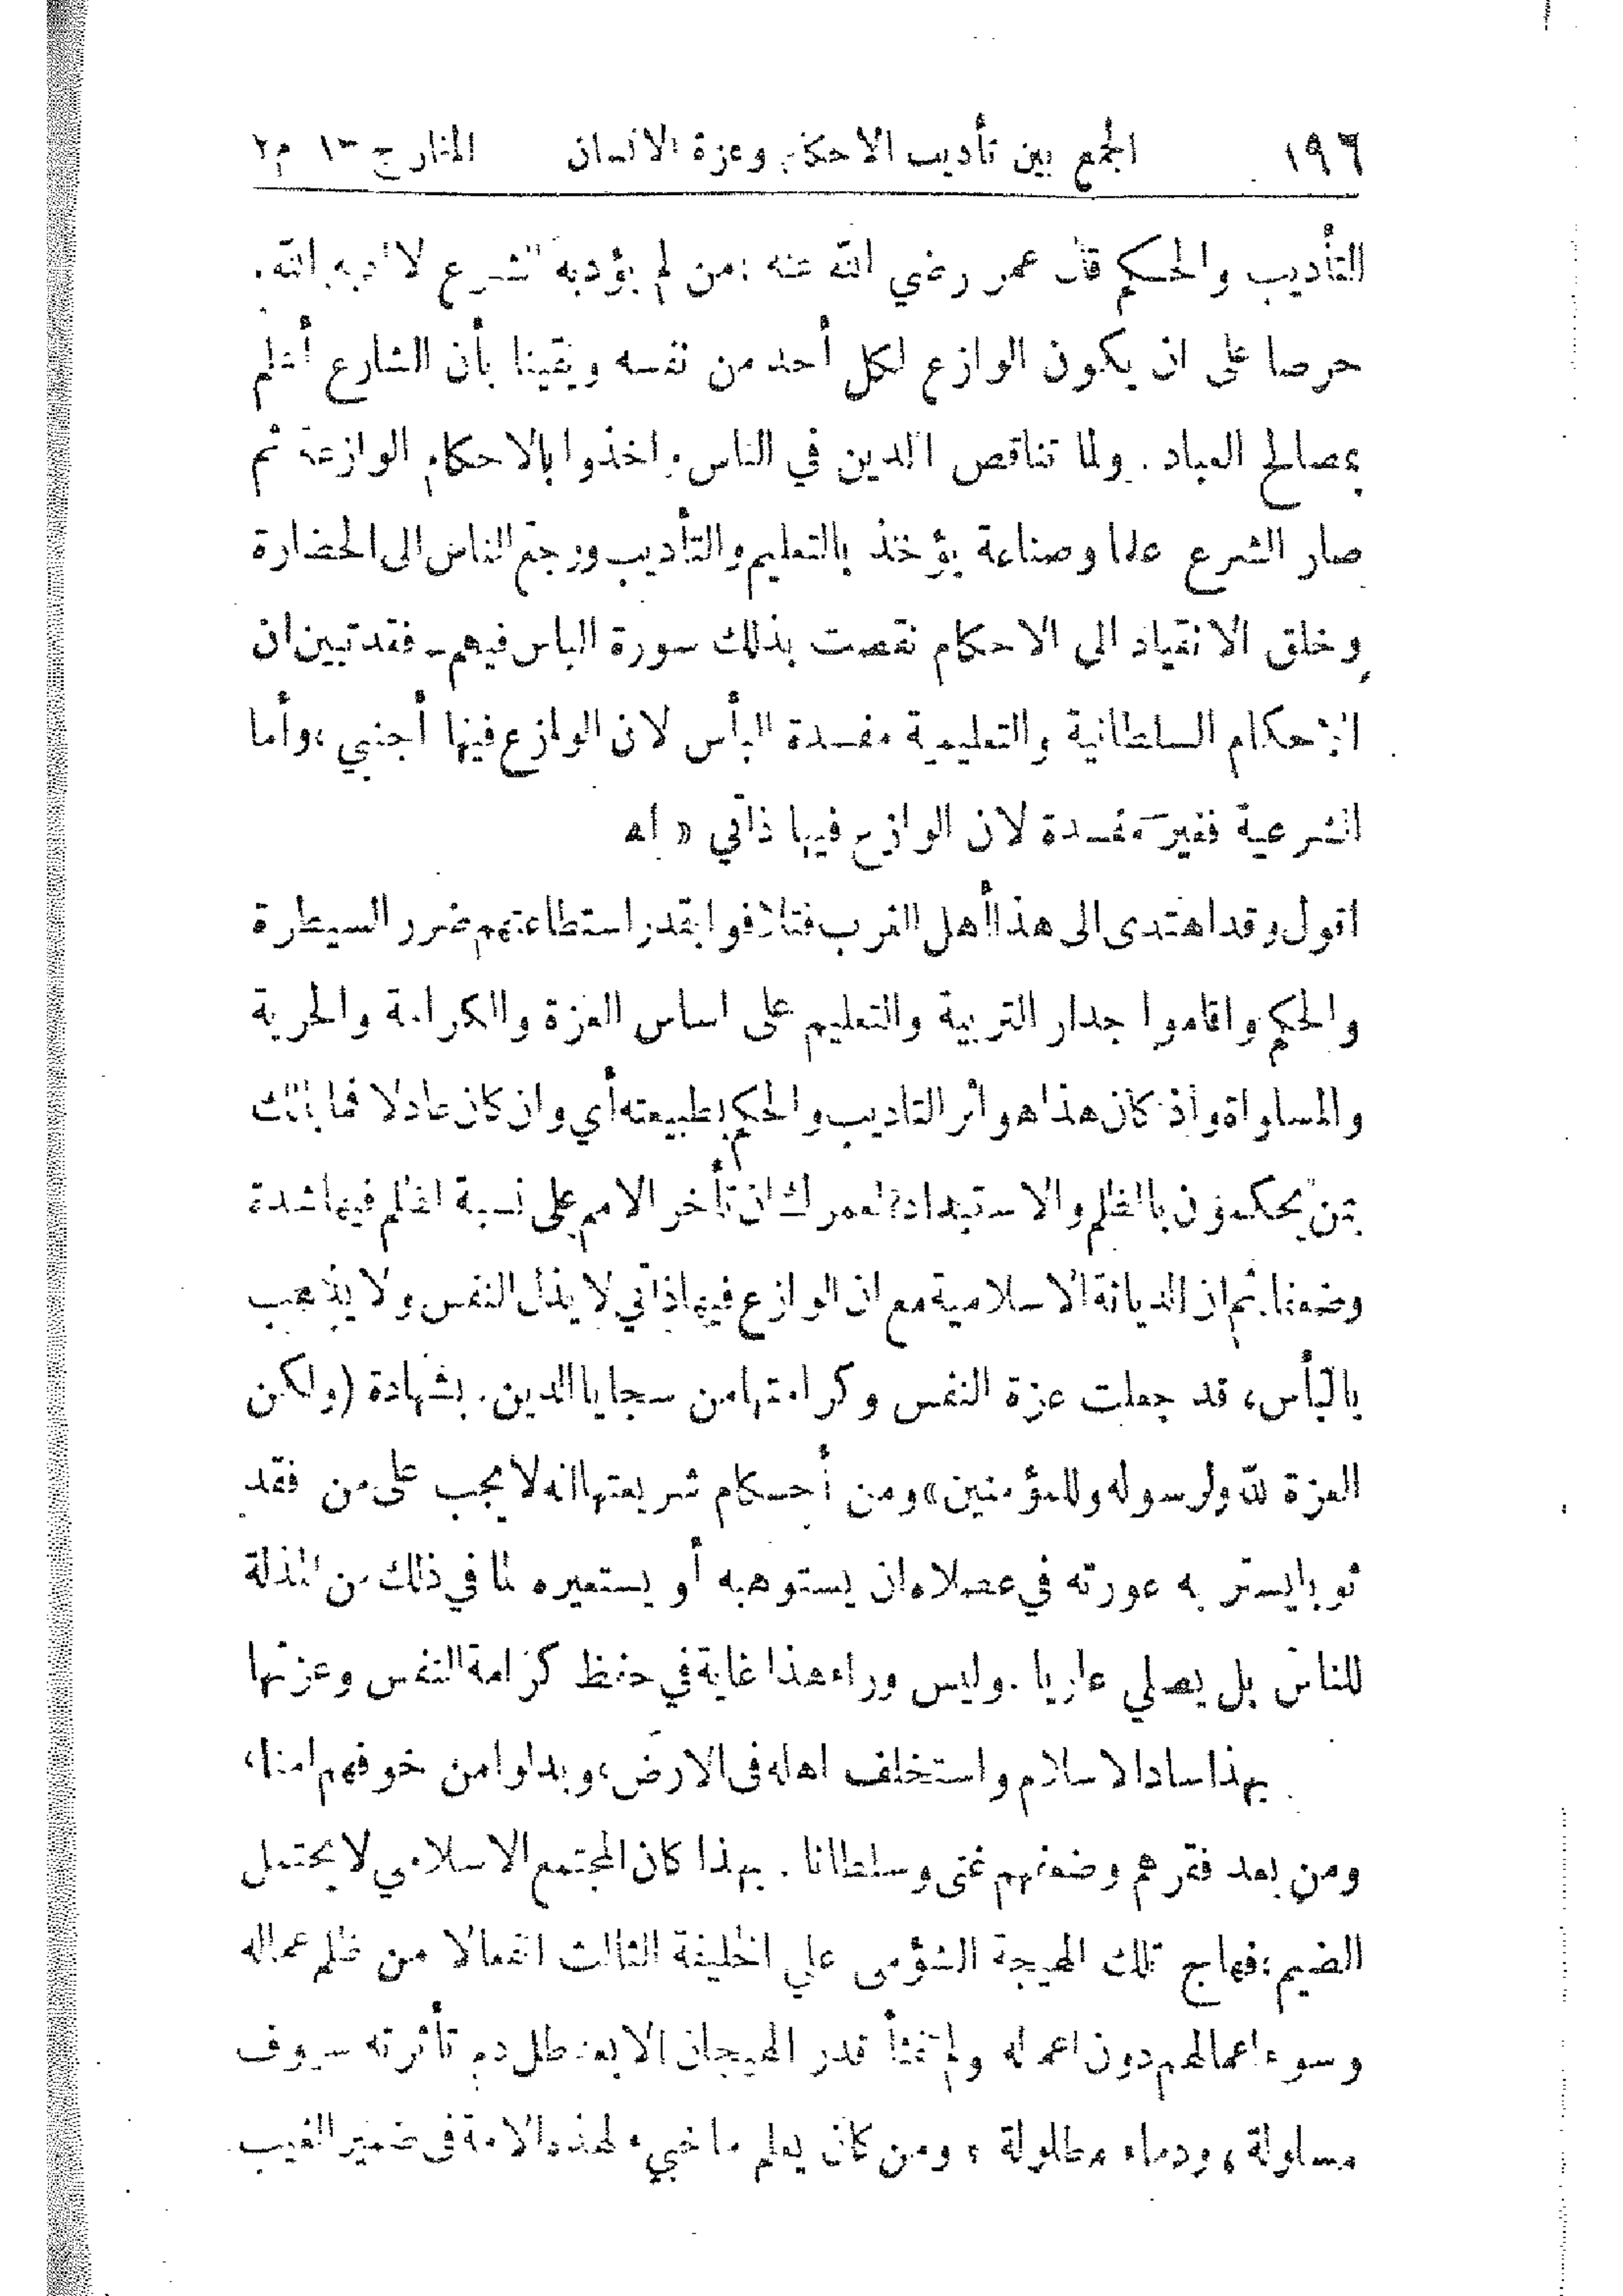 ١٩٦ الجمع بين تأديب الاحكام وعزة الانسان المنار ج ١٣ م ٢
التأديب والحكم قال عمر رضي الله عنه :من لم يؤدبه الشرع لا ادبه الله.
حرصا على ان يكون الوازع لكل أحد من نفسه ويقينا بأن الشارع أعلم
بمصالح العباد . ولما تناقص الدين في الناس واخذوا بالاحكام الوازعة ثم
صار الشرع علما وصناعة يؤخذ بالتعليم والتأديب ورجع الناس الى الحضارة
وخلق الانقياد الى الاحكام نقصت بذلك سورة الباس فيهم ـ فقد تبين ان
الاحكام السلطانية والتعليمية مفسدة البأس لان الوازع فيها أجنبي ،وأما
الشرعية فغير مفسدة لان الوازع فيها ذاتي » اه
اقول وقد اهتدى الى هذا أهل الغرب فتلافوا بقدر استطاعتهم ضرر السيطرة
والحكم واقاموا جدار التربية والتعليم على اساس العزة والكرامة والحرية
والمساواة واذ كان هذا هو اثر التاديب والحكم بطبيعته أي وان كان عادلا فما بالك
بمن يحكمون بالظلم والاستبداد؟ لعمرك ان تأخر الامم على نسبة الظلم فيها شدة
وضعفا. ثم ان الديانة الاسلامية مع ان الوازع فيها ذاتي لا يذل النفس ولا يذهب
بالبأس، قد جعلت عزة النفس وكرامتها من سجايا الدين. بشهادة (ولكن
العزة لله ولرسوله وللمؤمنين» ومن أحكام شريعتها انه لا يجب على من فقد
ثوبا يستر به عورته في صلاه ان يستوهبه أو يستعيره لما في ذلك من المذلة
للناس بل يصلي عاريا . وليس وراء هذا غاية في حفظ كرامة النفس وعزتها
بهذا ساد الاسلام واستخلف اهله فى الارض، وبدلوا من خوفهم امنا،
ومن بعد فقرهم وضعفهم غنى وسلطانا . بهذا كان المجتمع الاسلامي لا يحتمل
الضيم؛ فهاج تلك الهيجة الشؤمى على الخليفة الثالث انفعالا من ظلم عماله
وسوء اعمالهم دون اعماله ولم تفثأ قدر الهيجان الا بعد طل دم تأثرته سيوف
مسلولة، ودماء مطلولة ، ومن كان يعلم ما خبيء لهذه الامة فى ضمير الغيب